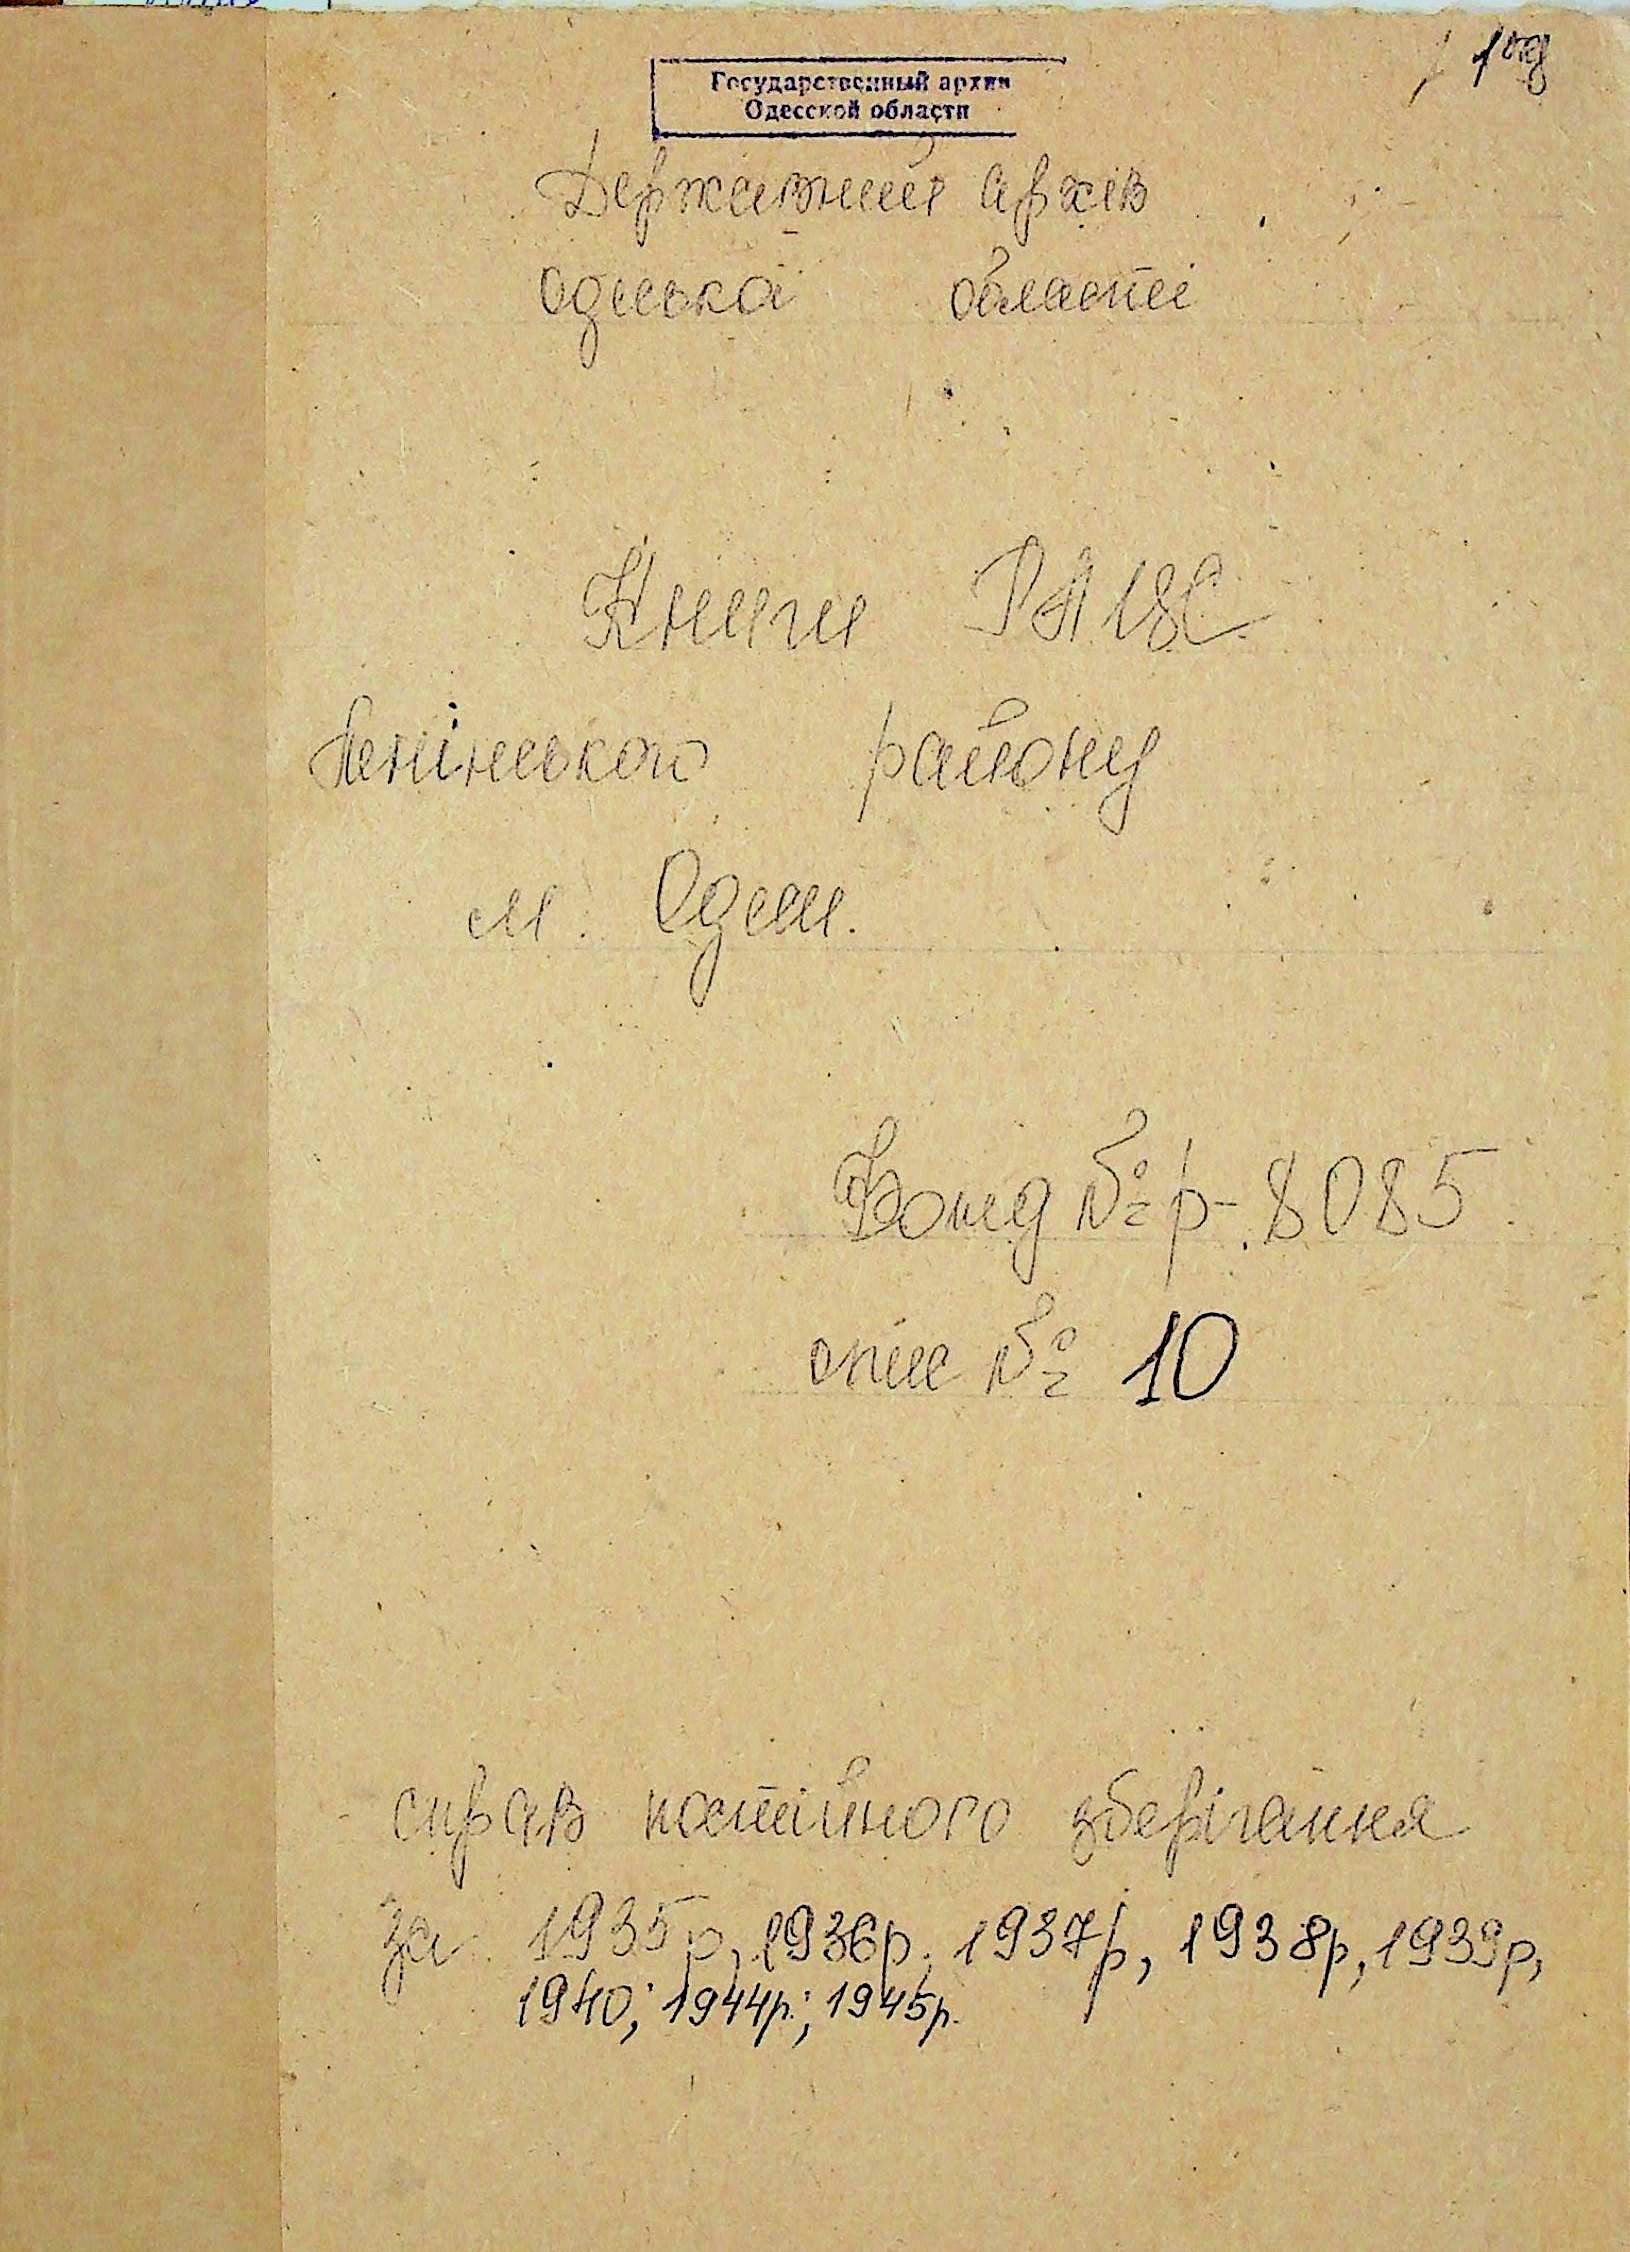 Государственный архив
Одесской области
Державний архів
Одеської області
Книги РАГС
Ленінського району
м. Одеси.
Фонд № р-8085
опис № 10
справ постійного зберігання
за 1935р, 1936р, 1937р, 1938р, 1939р,
1940; 1944р.; 1945р.